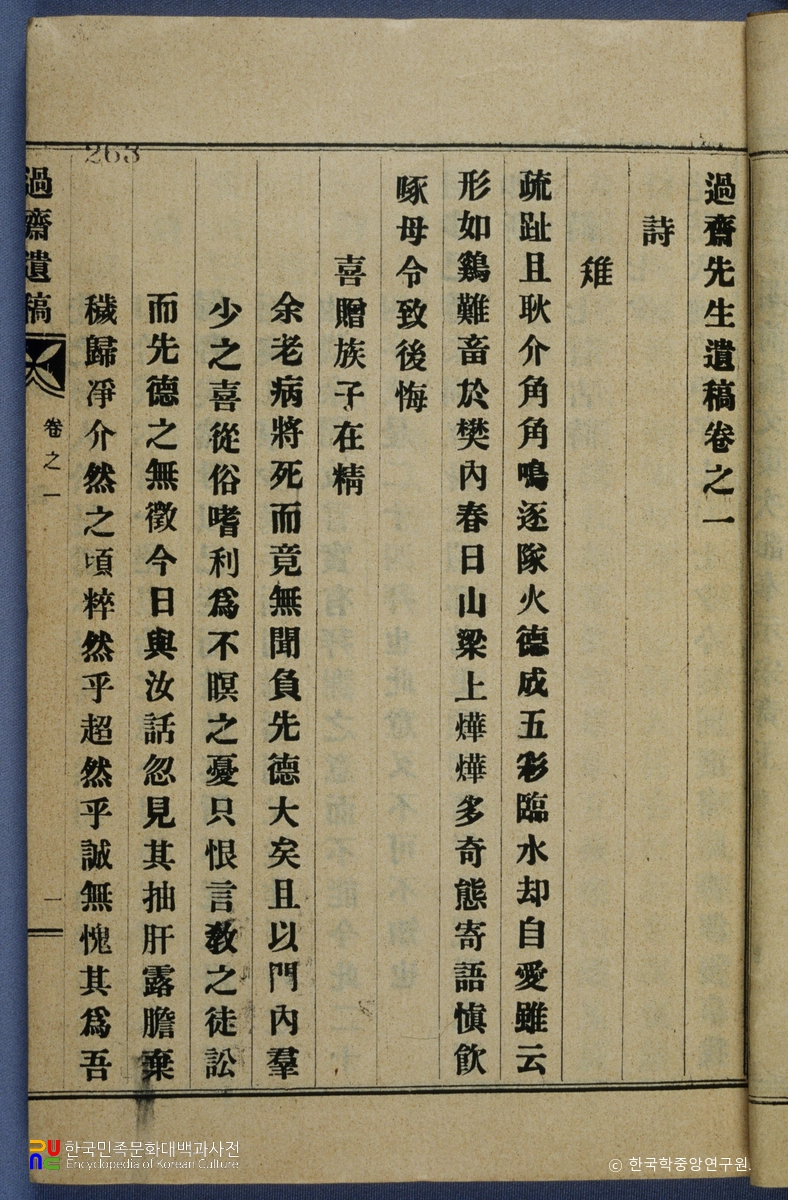 過齋先生遺稿卷之一
詩
雉
疏趾且耿介角角鳴逐隊火德成五彩臨水却自愛雖云
形如鷄難畜於樊內春日山梁上燁燁多奇態寄語愼飮
啄母令致後悔
喜贈族子在精
余老病將死而竟無聞負先德大矣且以門內羣
少之喜從俗嗜利爲不瞑之憂只恨言敎之徒訟
而先德之無徵今日與汝話忽見其抽肝露膽棄
穢歸凈介然之頃粹然乎超然乎誠無愧其爲吾
過齋遺稿
卷之一
一
263
한국민족문화대백과사전
Encyclopedia of Korean Culture
© 한국학중앙연구원